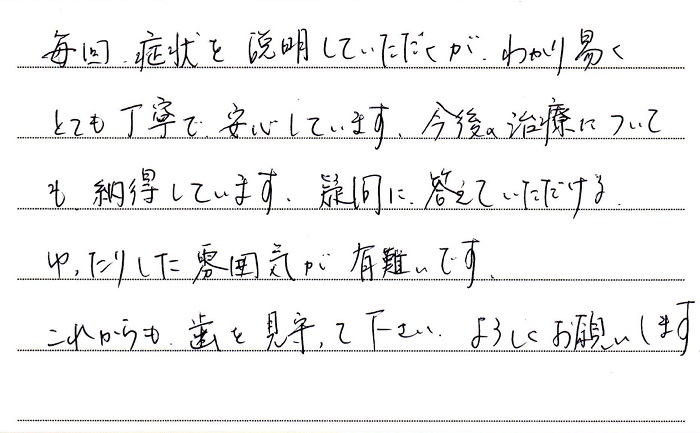 毎回、症状を説明していただくが、わかり易く
とても丁寧で、安心しています。今後の治療について
も、納得しています。疑問に、答えていただける、
ゆったりした雰囲気が有難いです。
これからも、歯を見守って下さい。よろしくお願いします